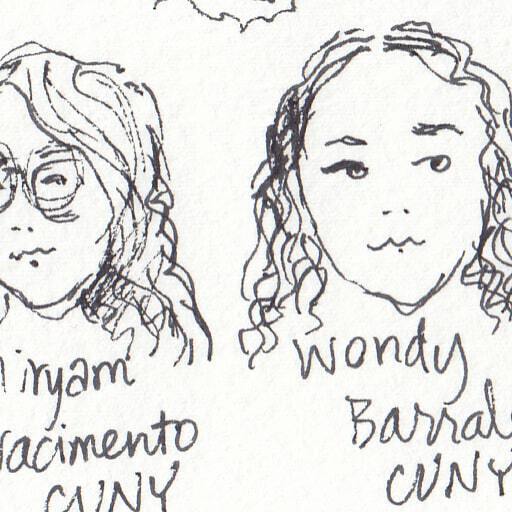 iryam
acimento
CUNY
Wondy
Barral
CUNY